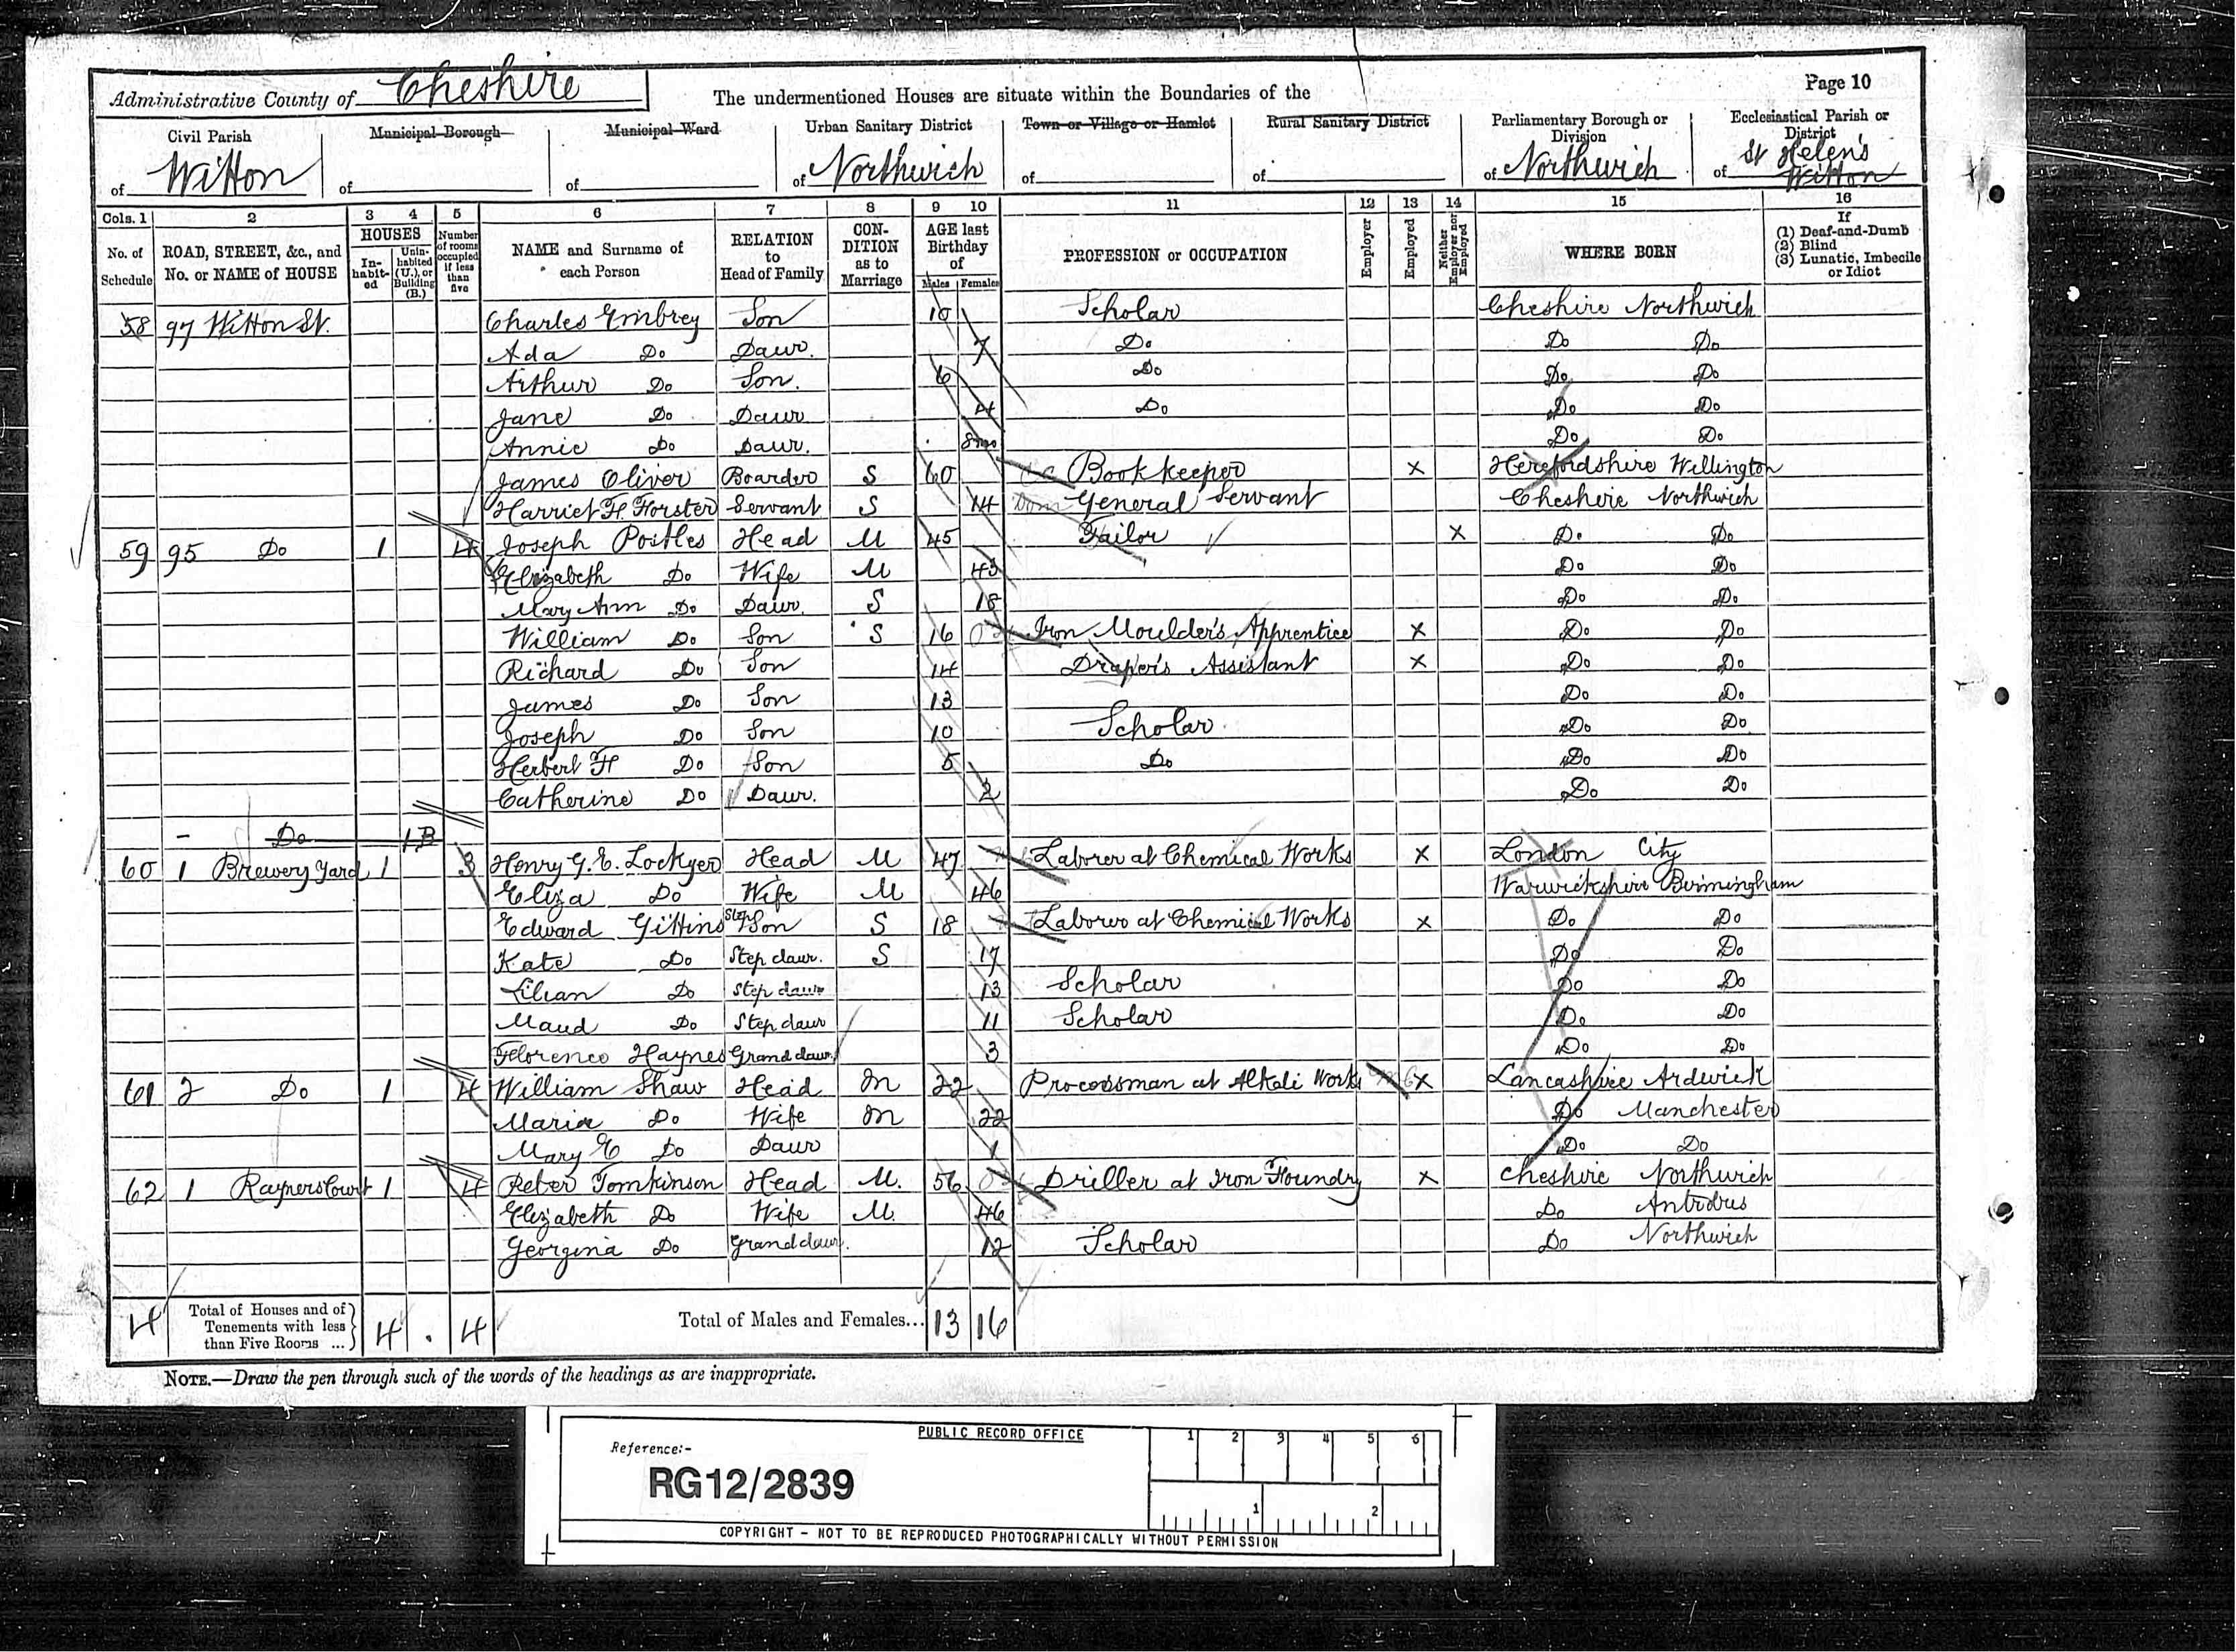 Page 10
Administrative County of Cheshire The undermentioned Houses are situate within the Boundaries of the
Civil Parish of Witton
Municipal Borough of
Municipal Ward of
Urban Sanitary District of Northwich
Town or Village or Hamlet of
Rural Sanitary District of
Parliamentary Borough or Division of Northwich
Ecclesiastical Parish or District of St Helen's Witton
Cols. 1 2 3 4 5 6 7 8 9 10 11 12 13 14 15 16
No. of Schedule
ROAD, STREET, &c., and No. or NAME of HOUSE
HOUSES
In-habit-ed
Unin-habited (U.), or Building (B.)
Number of rooms occupied if less than five
NAME and Surname of each Person
RELATION to Head of Family
CON-DITION as to Marriage
AGE last Birthday of
Males Females
PROFESSION or OCCUPATION
Employer
Employed
Neither Employer nor Employed
WHERE BORN
If
(1) Deaf-and-Dumb
(2) Blind
(3) Lunatic, Imbecile or Idiot
58 97 Witton St. Charles Embrey Son 10 Scholar Cheshire Northwich
Ada Do Daur. 7 Do Do Do
Arthur Do Son. 6 Do Do Do
Jane Do Daur 4 Do Do Do
Annie Do Daur. 8mo Do Do
James Oliver Boarder S 60 Book keeper X Herefordshire Wellington
Harriet F. Forster Servant S 14 General Servant Cheshire Northwich
59 95 Do 1 4 Joseph Postles Head M 45 Tailor X Do Do
Elizabeth Do Wife M 43 Do Do
Mary Ann Do Daur. S 18 Do Do
William Do Son S 16 Iron Moulder's Apprentice X Do Do
Richard Do Son 14 Draper's Assistant X Do Do
James Do Son 13 Do Do
Joseph Do Son 10 Scholar Do Do
Herbert H Do Son 5 Do Do Do
Catherine Do Daur. 2 Do Do
- Do 1 B
60 1 Brewery Yard 1 3 Henry G. E. Lockyer Head M 47 Laborer at Chemical Works X London City
Eliza Do Wife M 46 Warwickshire Birmingham
Edward Gittins Step Son S 18 Laborer at Chemical Works X Do Do
Kate Do Step daur. S 17 Do Do
Lilian Do Step daur 13 Scholar Do Do
Maud Do Step daur 11 Scholar Do Do
Florence Haynes Grand daur. 3 Do Do
61 2 Do 1 4 William Shaw Head M 22 Processman at Alkali Works X Lancashire Ardwick
Maria Do Wife M 22 Do Manchester
Mary E Do Daur 1 Do Do
62 1 Rayners Court 1 4 Peter Tomkinson Head M. 56 Driller at Iron Foundry X Cheshire Northwich
Elizabeth Do Wife M. 46 Do Antrobus
Georgina Do Grand daur. 12 Scholar Do Northwich
4 Total of Houses and of Tenements with less than Five Rooms ... 4 . 4 Total of Males and Females... 13 16
NOTE.—Draw the pen through such of the words of the headings as are inappropriate.
PUBLIC RECORD OFFICE
1 2 3 4 5 6
Reference:-
RG12/2839
1 2
COPYRIGHT - NOT TO BE REPRODUCED PHOTOGRAPHICALLY WITHOUT PERMISSION